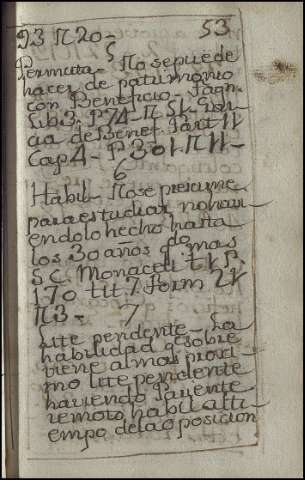 93 N 20- 53
5
Permuta- No sepuede
hacer de patrimonio
con Beneficio- Fagn.
Lib 3. P 74- N 51. Gar-
cia de Benef. Part 11
Cap 4- P 301. N 11-
6
Habil- No se presume
para estudiar no havi-
endolo hecho hasta
los 30 años qdo mas
S C. Monaceti t 1 P.
170 tit 7 Form 21
N 3- 7
Lite pendente- La
habilidad q sobre
viene al mas proxi-
mo lite pendente
haviendo Pariente
remoto habil al ti-
empo dela oposicion